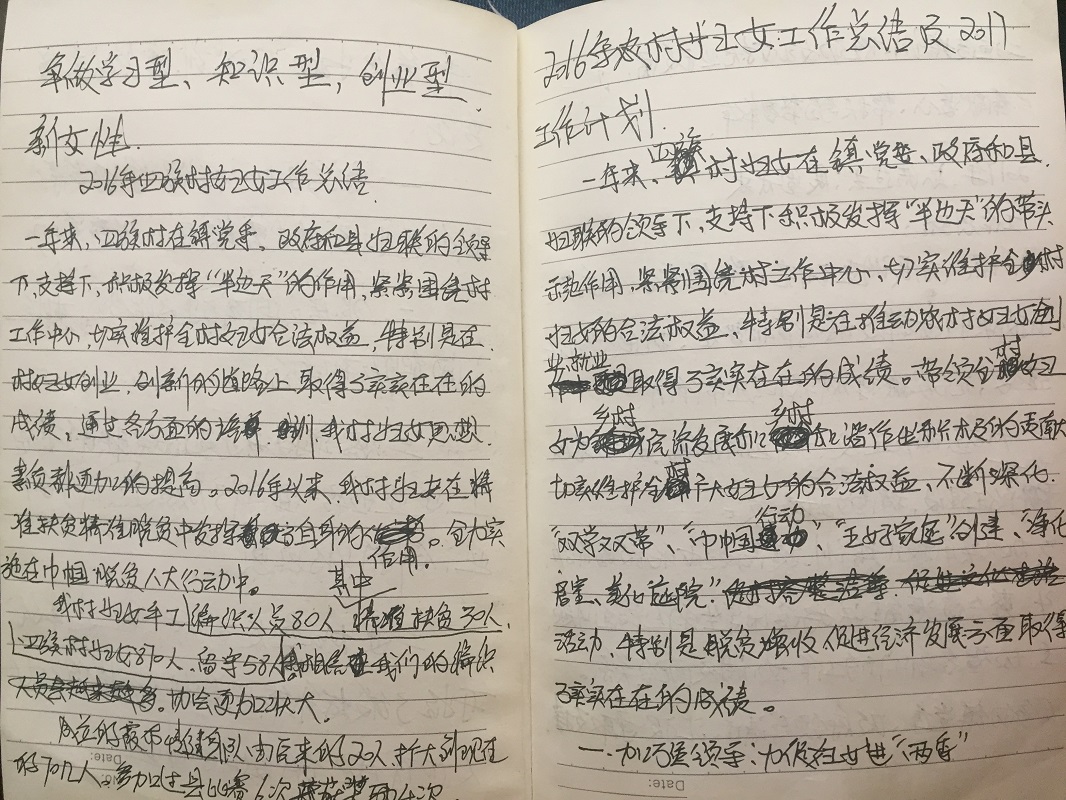 争做学习型、知识型,创业型
新女性.
2016年四族村妇女工作总结
一年来,四族村在镇党委、政府和县妇联的领导
下,支持下,积极发挥“半边天”的作用,紧紧围绕村
工作中心,切实维护全村妇女合法权益,特别是在
村妇女创业,创新的道路上取得了实实在在的
成绩。通过各方面的培训,我村妇女思想
素质都更加的提高。2016年以来,我村妇女在精
准扶贫精准脱贫中发挥了自身的作用。全力实
施在巾帼脱贫八大行动中。
其中
我村妇女手工编织人员80人,精准扶贫30人,
四族村妇女810人,留守58人,相信在我们的编织
协会更加壮大。
成立的霞布健身队,由后来的20人扩大到现在
的70几人。参加过县比赛6次获奖4次
2016年农村妇女工作总结及2017
工作计划.
一年来,四族村妇女在镇党委、政府和县
妇联的领导下,支持下积极发挥“半边天”的带头
示范作用,紧紧围绕村工作中心,切实维护全村
妇女的合法权益、特别是在推动农村妇女创
业就业取得了实实在在的成绩。带领全村妇
女为乡村 乡村
切实维护全村广大妇女的合法权益、不断深化.
“双学双带”、“巾帼行动”、“五好家庭”创建、“净化
居室、美化庭院”
活动、特别是脱贫增收促进经济发展方面取得
了实实在在的成绩。
一.加强领导:力促妇女进“两委”
Date:
Date: